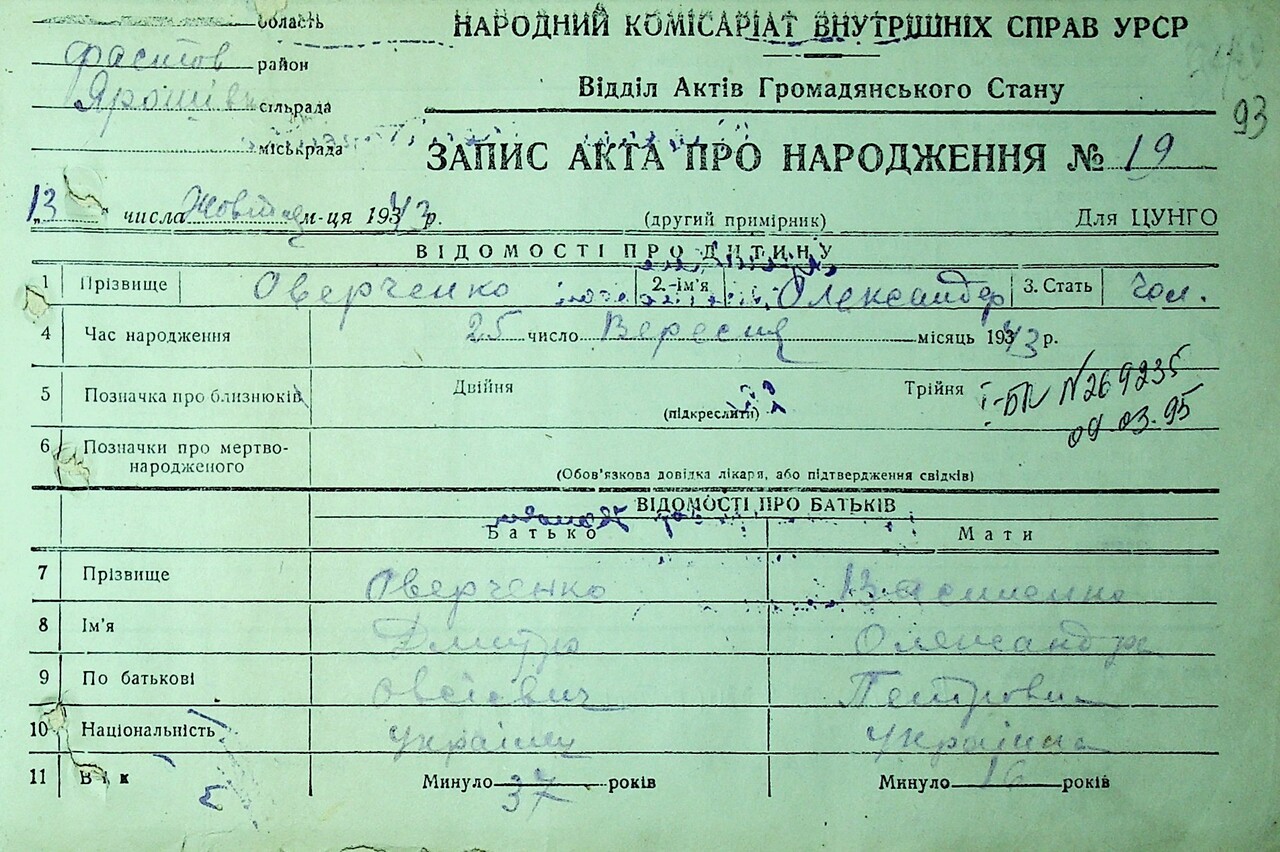 область
НАРОДНИЙ КОМІСАРІАТ ВНУТРІШНІХ СПРАВ УРСР
Фастов район
Відділ Актів Громадянського Стану
Ярошівк сільрада
93
міськрада
ЗАПИС АКТА ПРО НАРОДЖЕННЯ № 19
"13" числа Жовтня м-ця 1943 р.
(другий примірник)
Для ЦУНГО
ВІДОМОСТІ ПРО ДИТИНУ
1 Прізвище Оверченко 2. ім'я Олександер 3. Стать Чол.
4 Час народження 25 число Вересня місяць 1943 р.
5 Позначка про близнюків Двійня (підкреслити) Трійня
І-БК №269235
09.03.95
6 Позначки про мертво-
народженого
(Обов'язкова довідка лікаря, або підтвердження свідків)
ВІДОМОСТІ ПРО БАТЬКІВ
Батько Мати
7 Прізвище Оверченко Василенко
8 Ім'я Дмитро Олександра
9 По батькові Овсієвич Петровна
10 Національність Українец Украінка
11 Вік Минуло 37 років Минуло 16 років